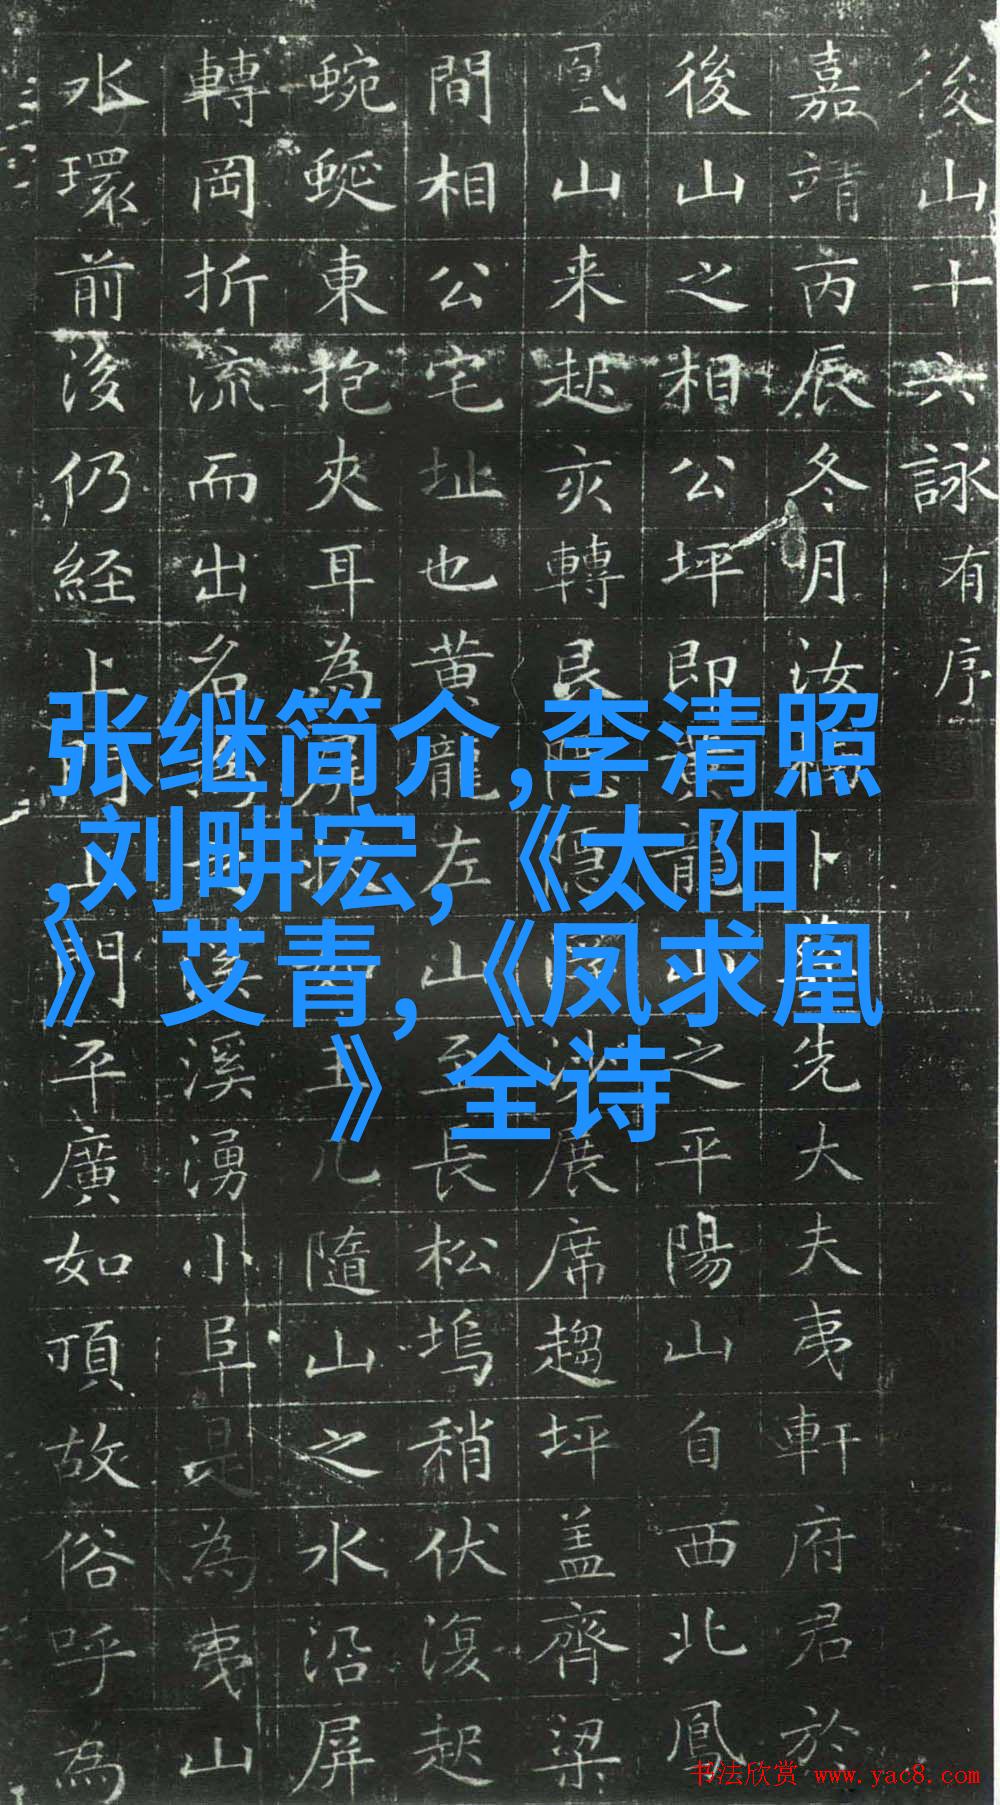 後山十六詠有序
嘉靖丙辰冬月汝卜先大夫夷軒府君於
後山之相公坪即黃龍山之平陽山自西北鳳
凰山来起亥轉艮隱沙展席趨坪盖齊梁
間相公宅址也黄龍左山至長松塢稍伏復起
蜿蜒東抱夾耳為屏几隨山之水沿屏
轉岡折流而出名溪溪湧小阜是為夷山
水環前後仍経上門平廣如頂故俗呼為
张继简介,李清照
,刘畊宏,《太阳
》艾青,《凤求凰
》全诗
书法欣赏 www.yac8.com